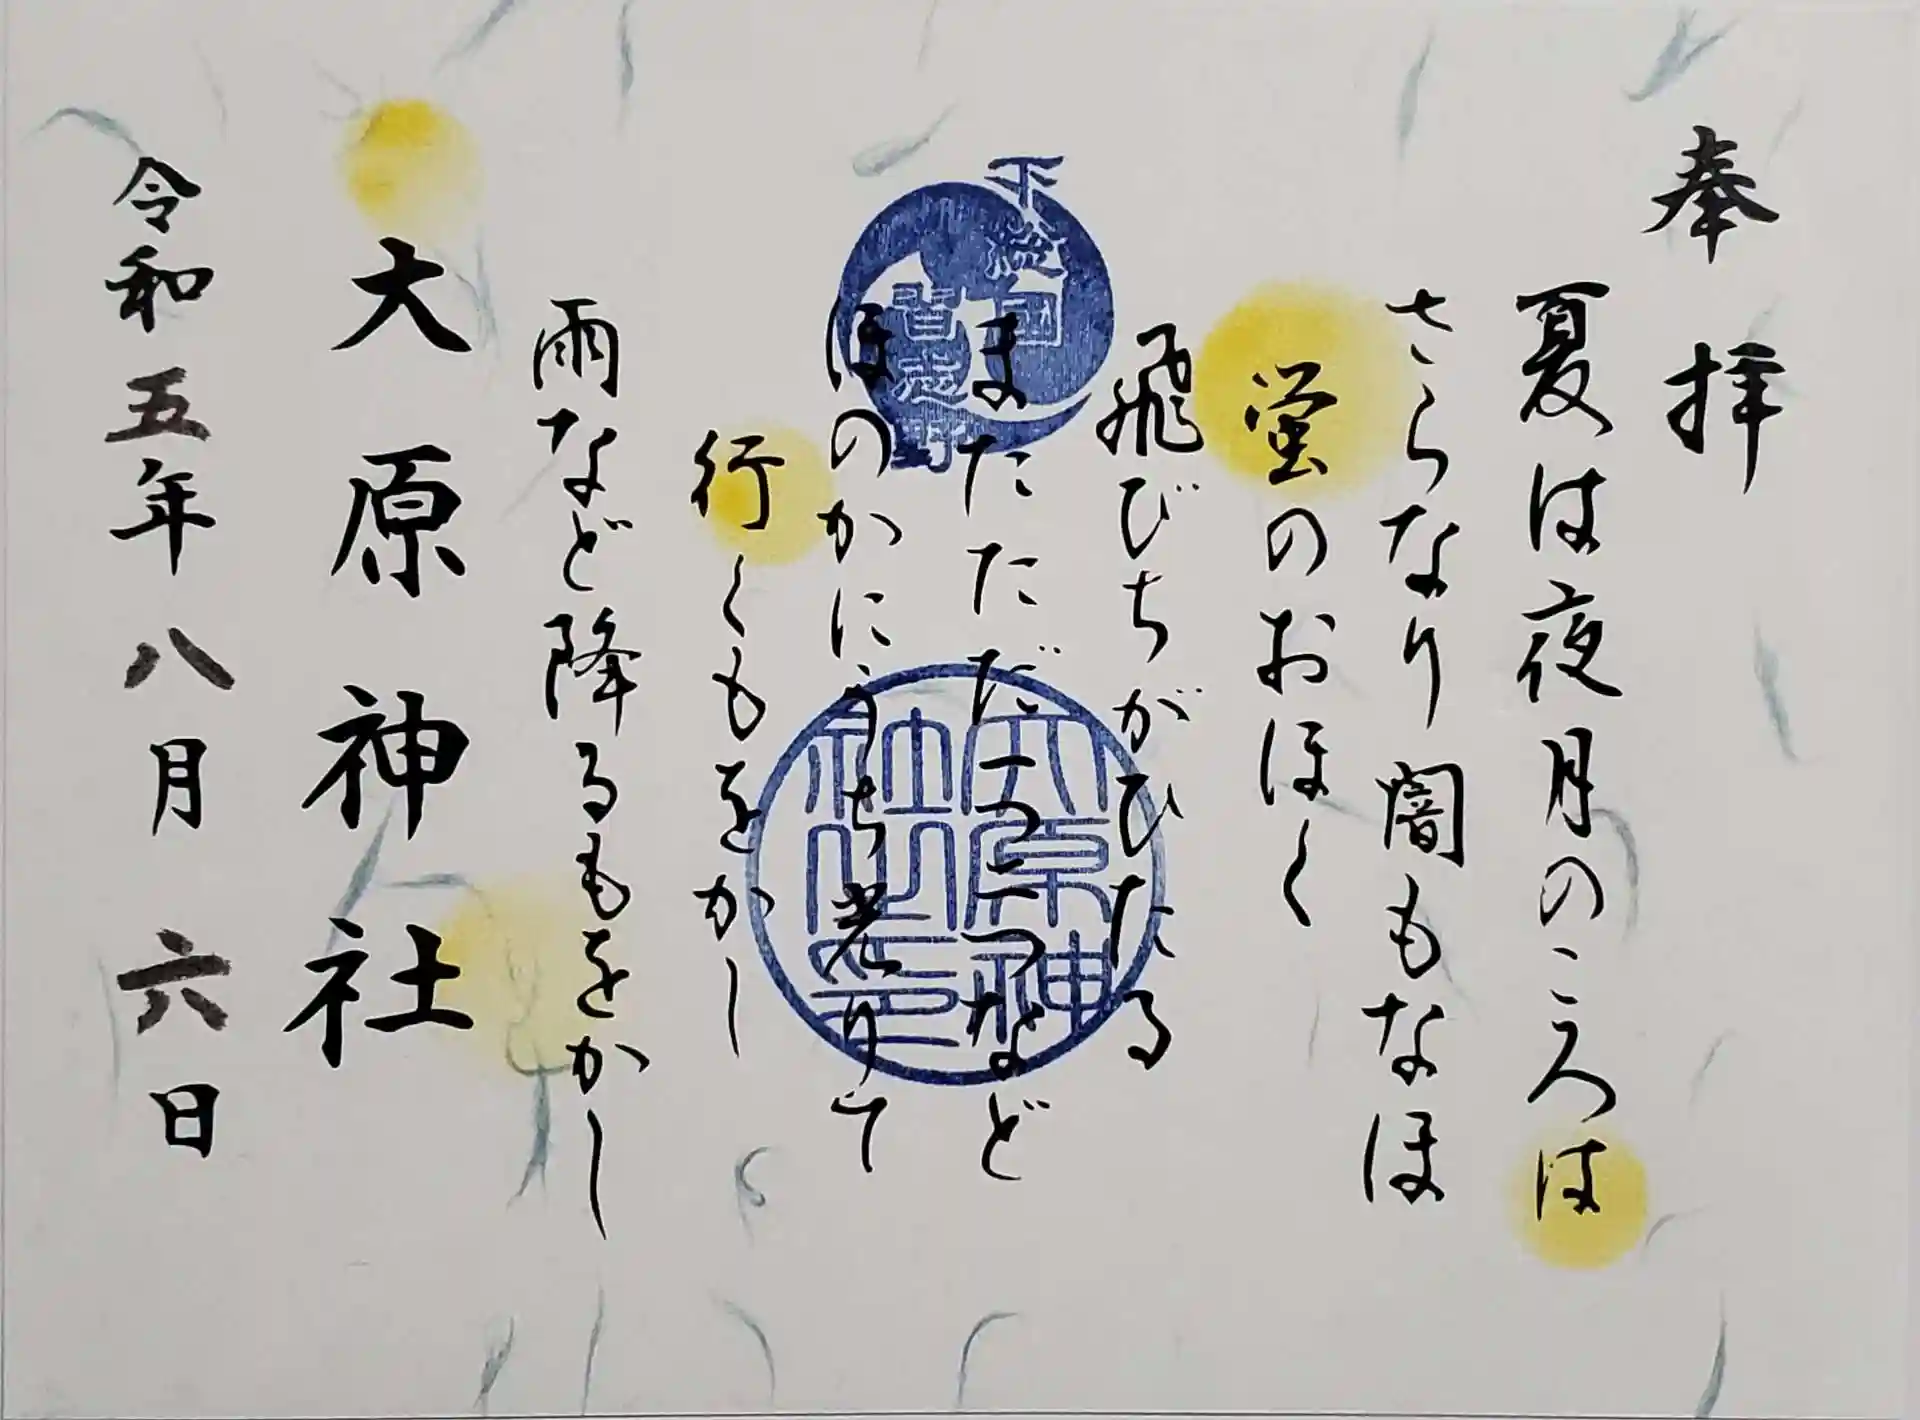 奉拝
夏は夜月のころは
さらなり闇もなほ
蛍のおほく
飛びちがひたる
まただだ一つ二つなど
ほのかにうち光りて
行くもをかし
雨など降るもをかし
下総国
習志野
大原神
社之印
大原神社
令和五年八月六日